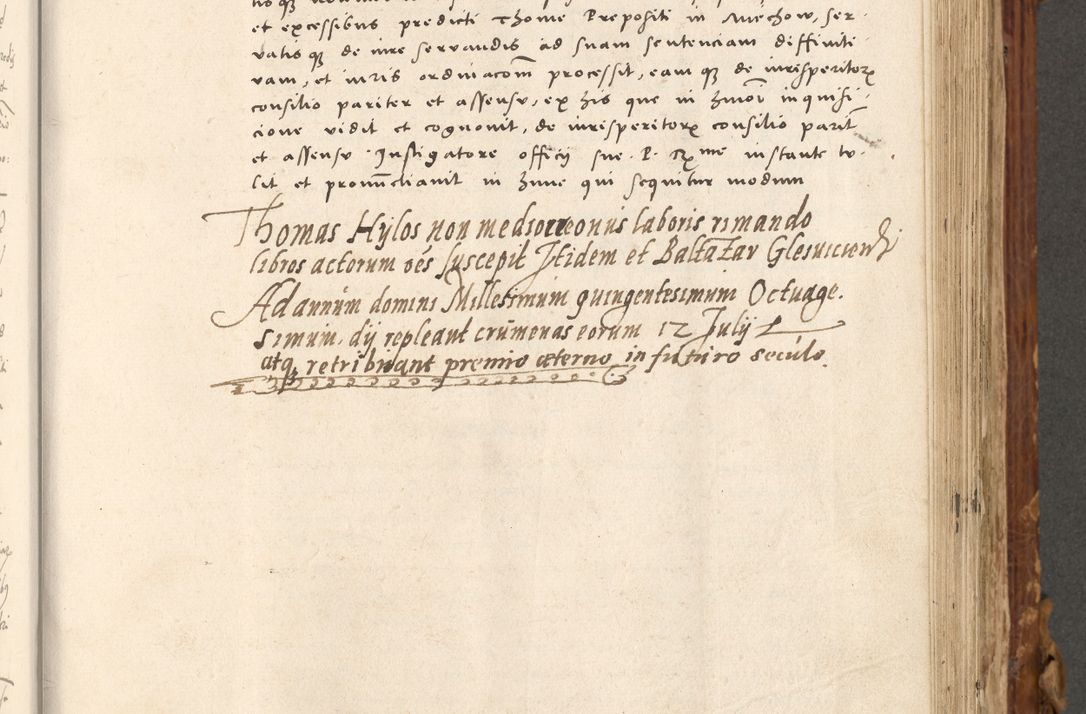 et excessibus predicti Thome Prepositi in Miechow, ser-
vatis q̃ de iure servandis ad suam sentenciam diffiniti-
vam, et iuris ordinacom̃ processit, eam q̃ de iurisperitorꝝ
consilio pariter et assensu, ex his que in hmõi inquisi-
cione vidit et cognovit, de iurisperitorꝝ consilio parit̃
et assensu Instigatore officij sue P. Rme instante tu-
lit et pronũcciavit in hunc qui sequitur modum
Thomas Hylos non mediocre onus laboris rimando
libros actorum oẽs suscepit Itidem et Baltazar
Ad annũm domini Millesimum quingentesimum Octuage.
simum. dij repleant crũmenas eorum 12 Julij
atq̃ retribuant premio æterno in futuro secúlo